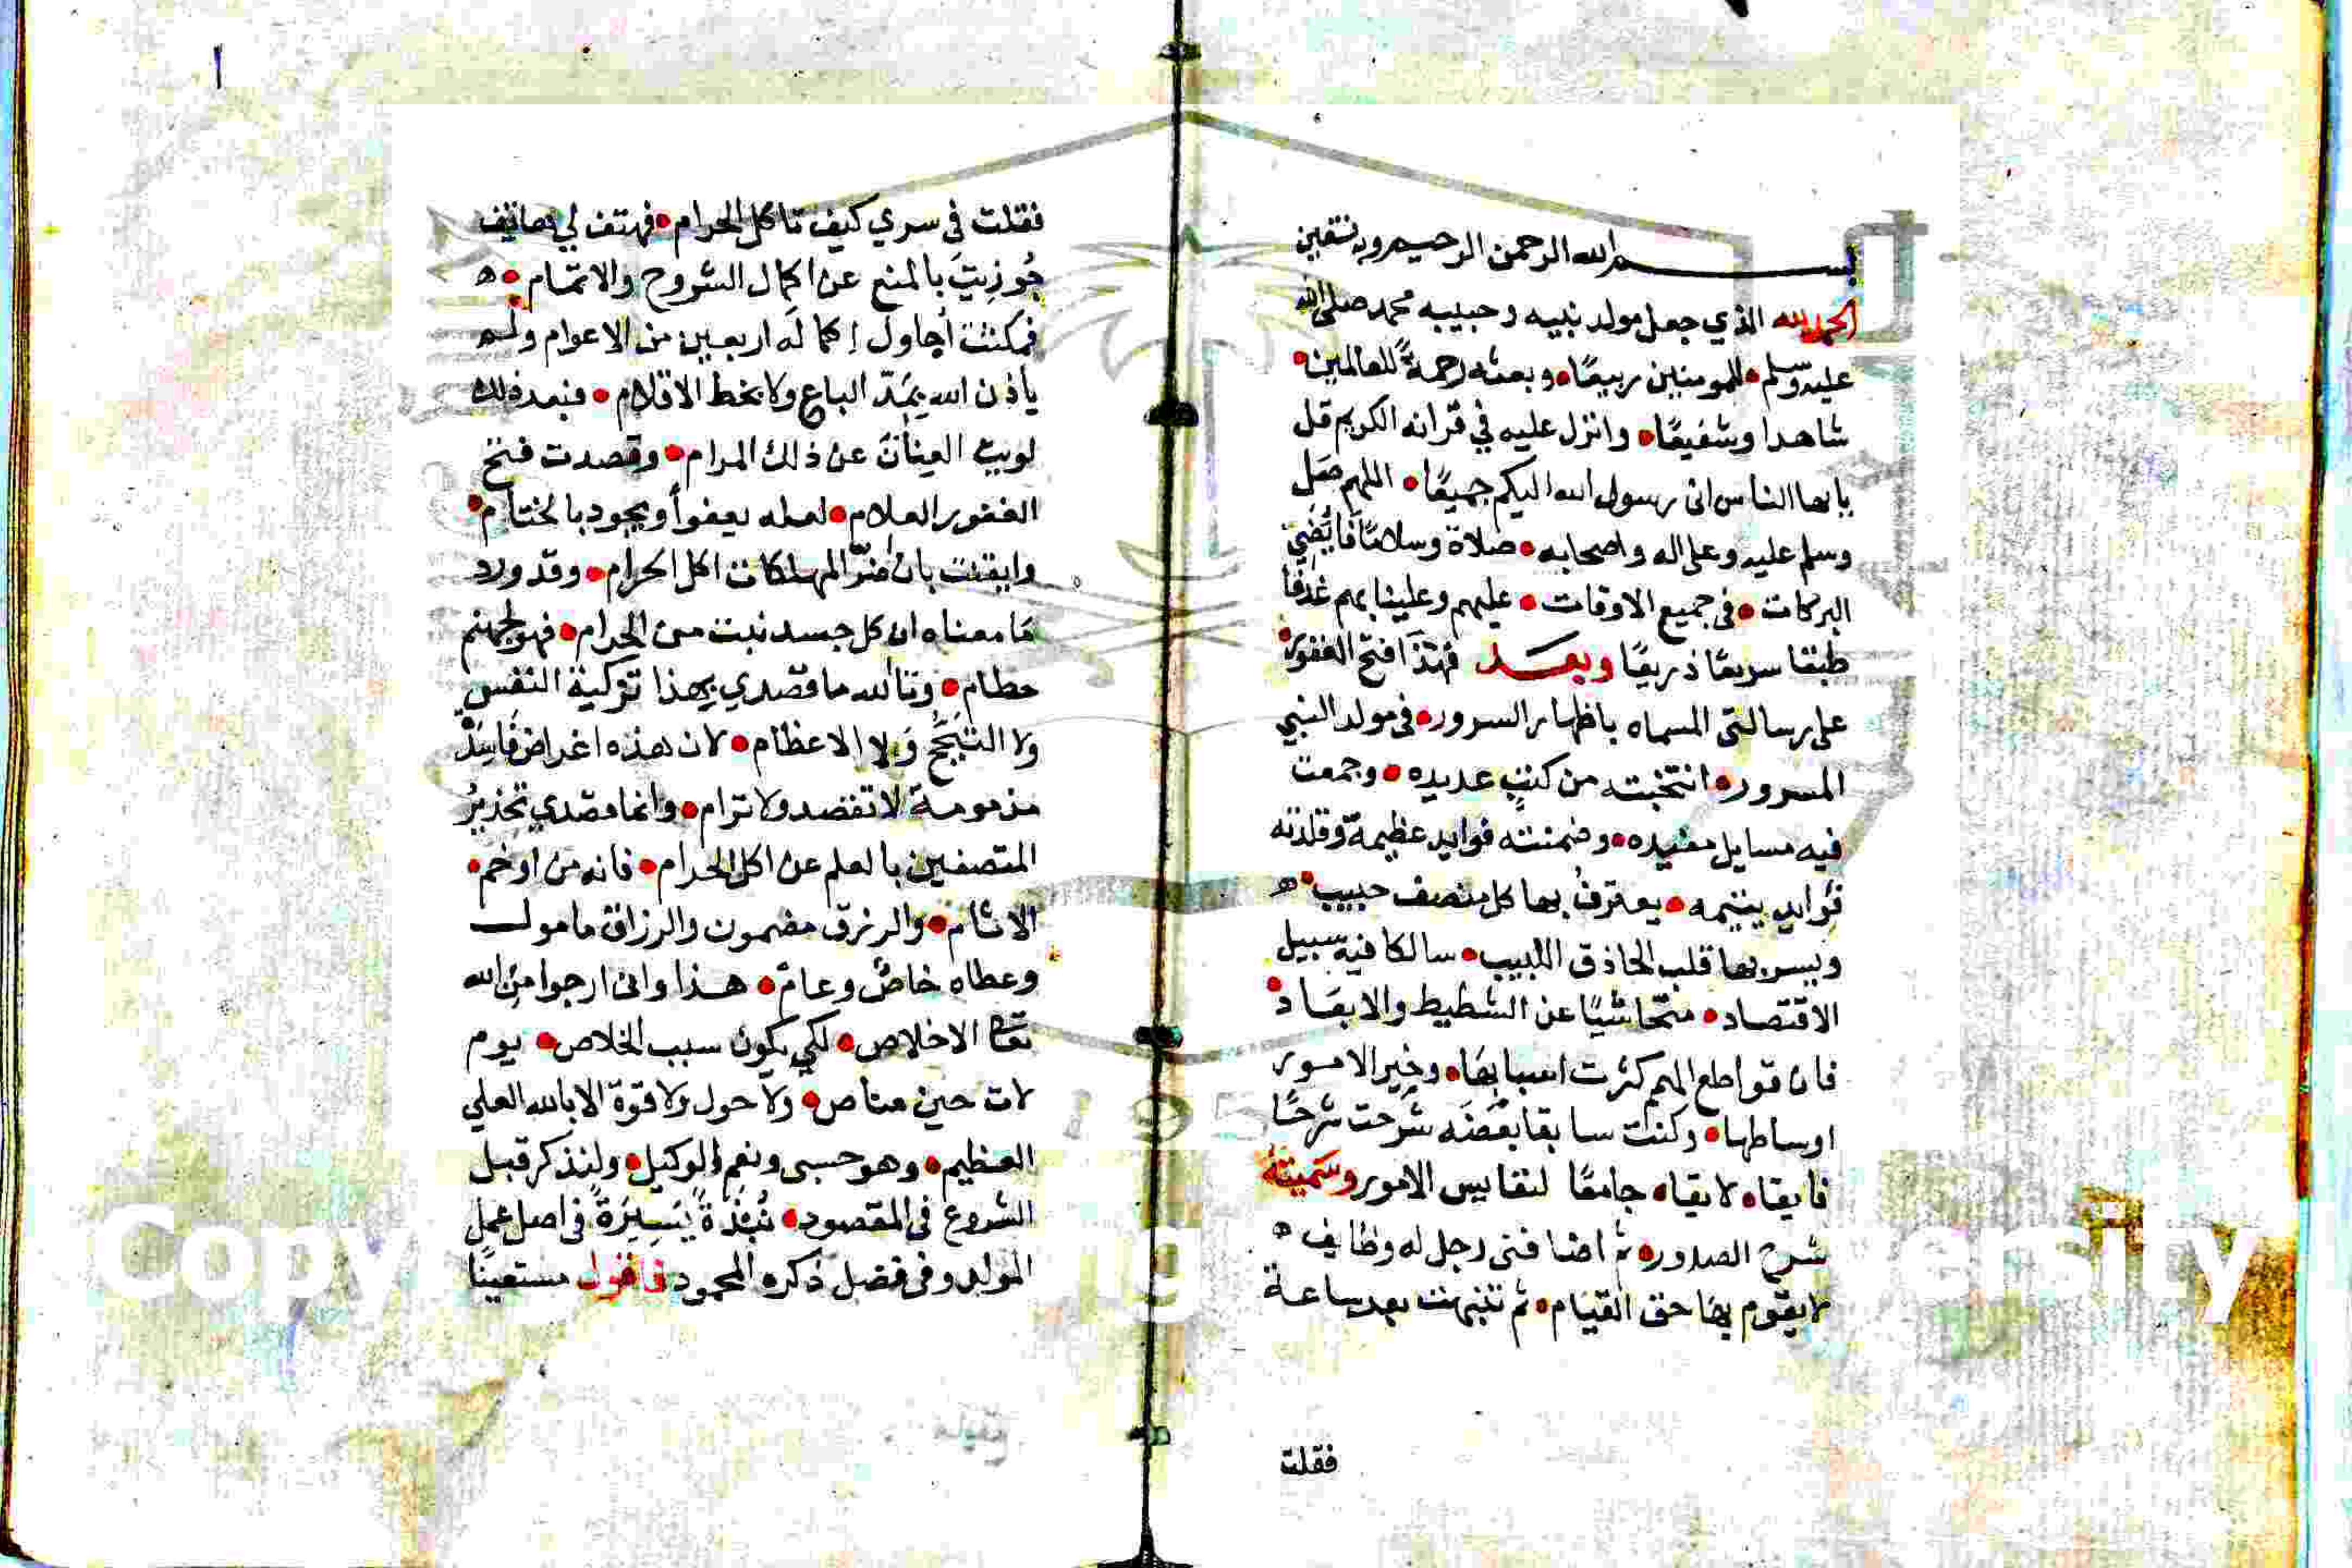 بسم الله الرحمن الرحيم وبه نستعين
الحمد لله الذي جعل مولد نبيه وحبيبه محمد صلى الله
عليه وسلم للمومنين ربيعًا وبعثه رحمةً للعالمين
شاهدا وشفيعًا وانزل عليه في قرانه الكريم قل
يا ايها الناس اني رسول الله اليكم جميعًا اللهم صَل
وسلم عليه وعلى اله واصحابه صلاة وسلامًا فايضي
البركات في جميع الاوقات عليهم وعلينا بهم غدقا
طبقا سريعًا ذريعًا وبعد فهذا فتح الغفور
على رسالتي المسماه باظهار السرور في مولد النبي
المسرور انتخبته من كتبٍ عديده وجمعت
فيه مسايل مفيده وضمنته فوايد عظيمة وقلدته
فوايد يتيمه يعترف بها كل منصف حبيب
ويسر بها قلب الحاذق اللبيب سالكا فيه سبيل
الاقتصاد متحاشيًا عن الشطيط والابعاد
فان قواطع الهم كثرت اسبابها وخير الامور
اوساطها وكنت سابقا بعضه شرحت شرحًا
فايقا لايقا جامعًا لنفايس الامور وسميته
شرح الصدور ثم اضافني رجل له وظايف
لايقوم بها حق القيام ثم تنبهت بعد ساعة
فقلت
فقلت في سري كيف تاكل الحرام فهتف لي هاتف
جُوزيتَ بالمنع عن اكمال الشروح والاتمام
فمكثت اُحاول إكماله اربعين من الاعوام ولم
ياذن الله بمَدّ الباع ولا بخط الاقلام فبعد ذلك
لويت العنانَ عن ذلك المرام وقصدت فتح
الغفور العلام لعله يعفوا ويجود بالختام
وايقنت بان اضرّ المهلكات اكل الحرام وقد ورد
مَا معناه ان كل جسد نبت من الحرام فهو لجهنم
حطام وتالله ما قصدي بهذا تزكية النفس
ولا التبجُّح وَلا الاعظام لان هذه اغراض فاسدٌ
مذمومة لا تقصد ولا ترام وانما قصدي تحذيرُ
المتصفين بالعلم عن اكل الحرام فانه من اوخم
الاثام والرزق مضمون والرزاق مامول
وعطاه خاصٌ وعامٌ هذا واني ارجوا من الله
تعا الاخلاص لكي يكون سبب الخلاص يوم
لات حين مناص ولا حول ولا قوة الا بالله العلي
العظيم وهو حسبي ونعم الوكيل ولنذكر قبل
الشروع في المقصود نُبْذةً يَسِيرَةً في اصل عمل
المولد وفي فضل ذكره المحمود فاقول مستعينًا